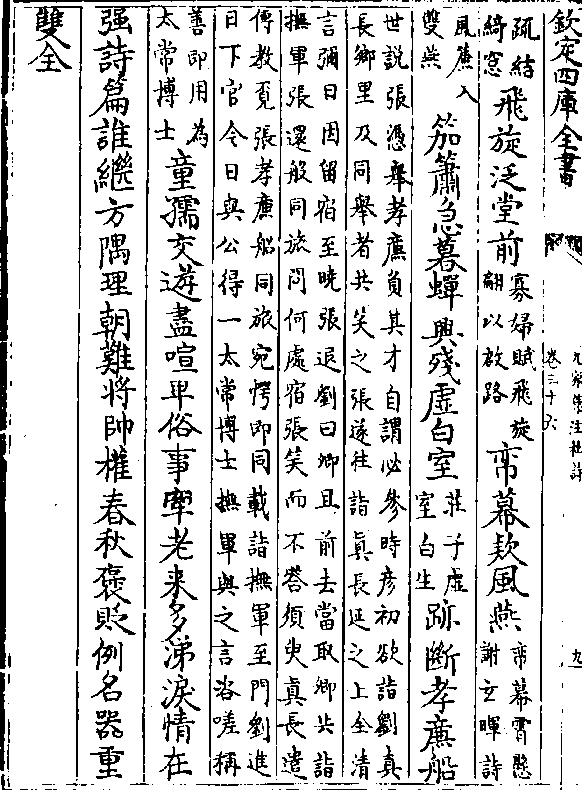 欽定四庫全書
九家集注杜詩
卷三十六
九
疏結
綺窓
飛旋泛堂前
寡婦賦飛旋
翩以放路
帟幕欵風燕
帟幕霄懸
謝玄暉詩
風簾入
雙燕
笳簫急暮蟬興殘虛白室
莊子虛
室白生
跡斷孝廉船
世説張憑舉孝廉負其才自謂必參時彥初欲詣劉真
長鄉里及同舉者共笑之張遂往詣真長延之上全清
言彌日因留宿至曉張退劉曰卿且前去當取卿共詣
撫軍張還船同旅問何處宿張笑而不荅須臾真長遣
傳教覓張孝廉船同旅宛愕即同載詣撫軍至門劉進
曰下官今日與公得一太常博士撫軍與之言咨嗟稱
善即用為
太常博士
童孺交遊盡喧卑俗事牽老来多涕淚情在
强詩篇誰繼方隅理朝難將帥權春秋褒貶例名器重
雙全